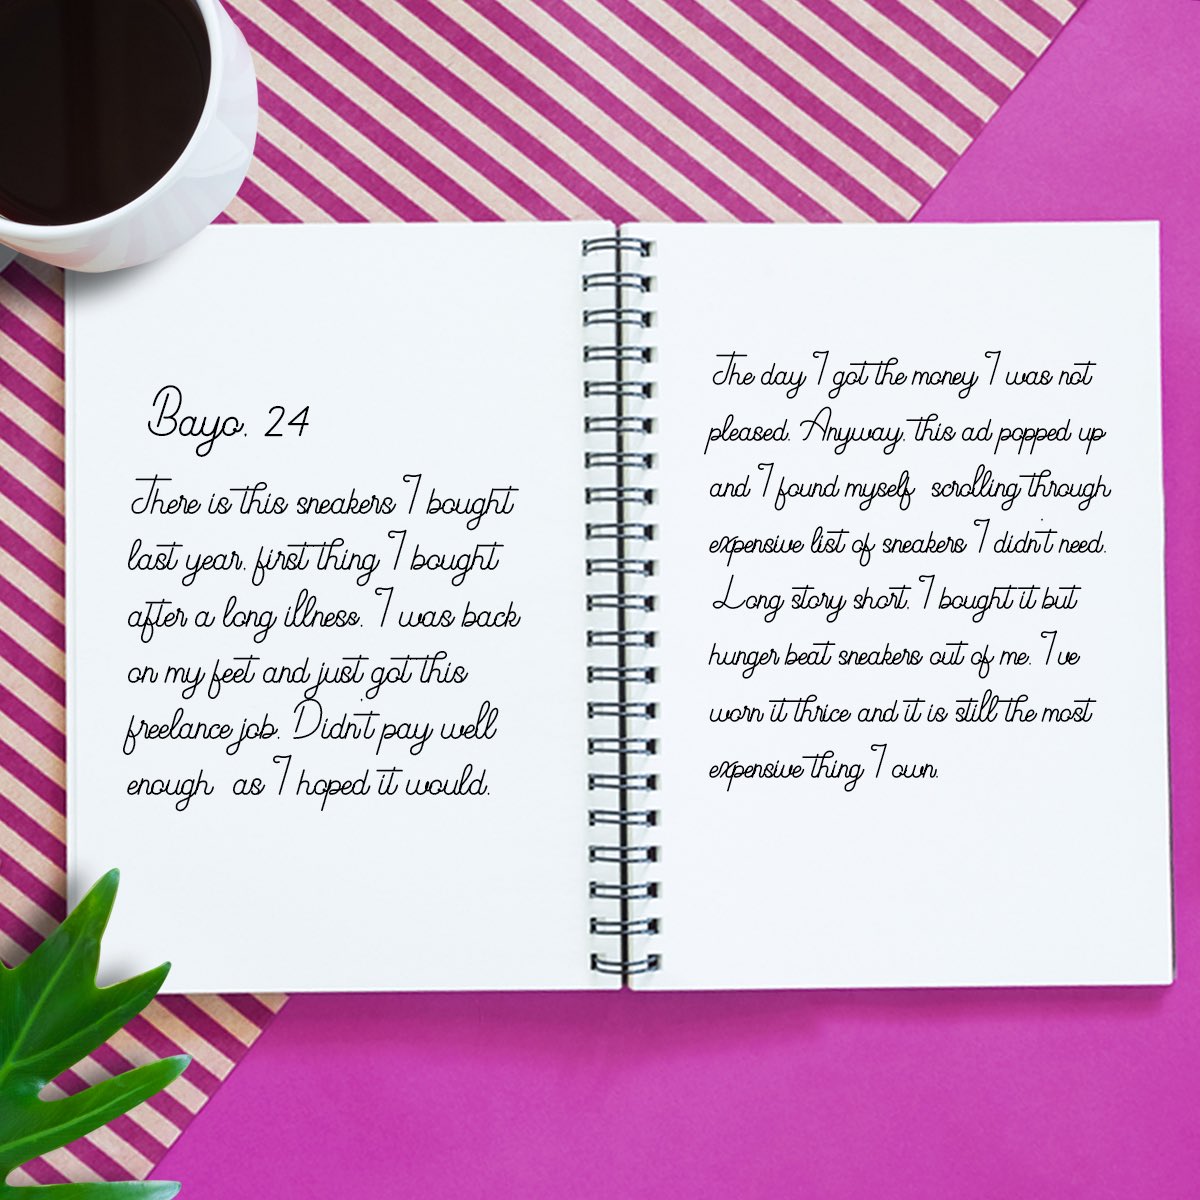 Bayo, 24
There is this sneakers I bought
last year, first thing I bought
after a long illness. I was back
on my feet and just got this
freelance job. Didn't pay well
enough as I hoped it would.
The day I got the money I was not
pleased. Anyway, this ad popped up
and I found myself scrolling through
expensive list of sneakers I didn't need.
Long story short, I bought it but
hunger beat sneakers out of me. I've
worn it thrice and it is still the most
expensive thing I own.